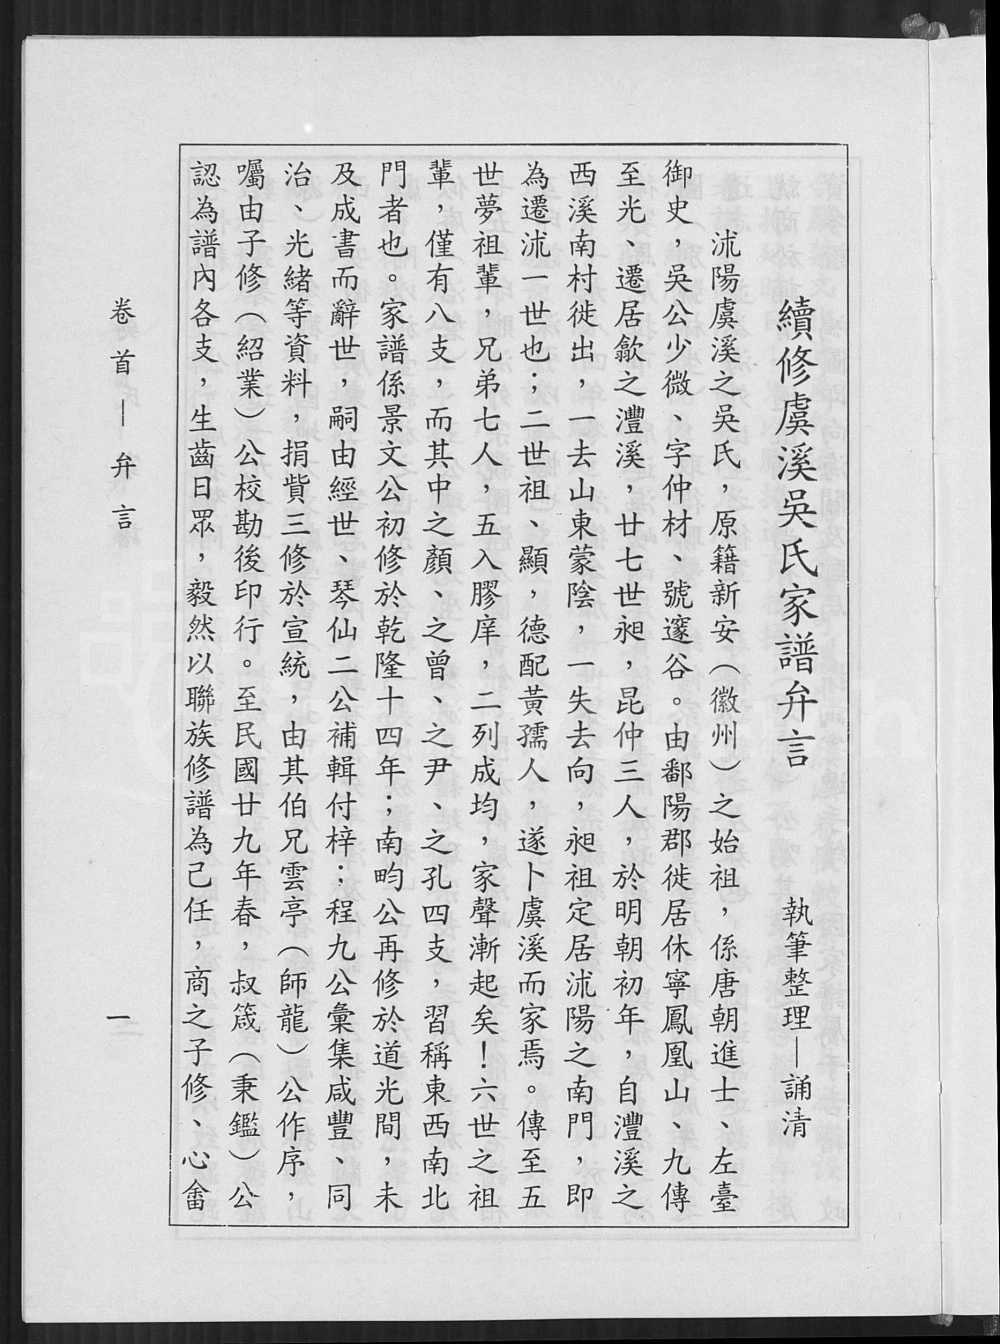 續修虞溪吳氏家譜弁言
執筆整理—誦清
沭陽虞溪之吳氏，原籍新安（徽州）之始祖，係唐朝進士、左臺
御史，吳公少微、字仲材、號邃谷。由鄱陽郡徙居休寧鳳凰山、九傳
至光、遷居歙之灃溪，廿七世昶，昆仲三人，於明朝初年，自灃溪之
西溪南村徙出，一去山東蒙陰，一失去向，昶祖定居沭陽之南門，即
為遷沭一世也；二世祖、顯，德配黃孺人，遂卜虞溪而家焉。傳至五
世夢祖輩，兄弟七人，五入膠庠，二列成均，家聲漸起矣！六世之祖
輩，僅有八支，而其中之顏、之曾、之尹、之孔四支，習稱東西南北
門者也。家譜係景文公初修於乾隆十四年；南畇公再修於道光間，未
及成書而辭世，嗣由經世、琴仙二公補輯付梓；程九公彙集咸豐、同
治、光緒等資料，捐貲三修於宣統，由其伯兄雲亭（師龍）公作序，
囑由子修（紹業）公校勘後印行。至民國廿九年春，叔箴（秉鑑）公
認為譜內各支，生齒日眾，毅然以聯族修譜為己任，商之子修、心畬
卷首—弁言
一